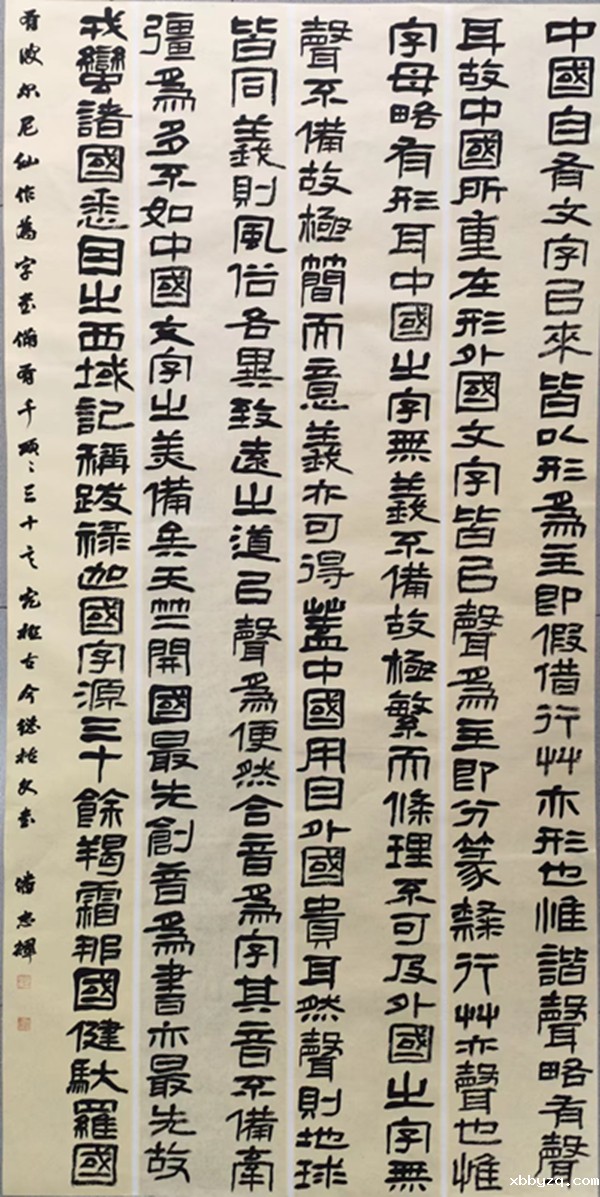 中國自有文字已來皆以形爲主即假借行艸亦形也惟諧聲略有聲
耳故中國所重在形外國文字皆已聲爲主即分篆隸行艸亦聲也惟
字母略有形耳中國之字無義不備故極繁而條理不可及外國之字無
聲不備故極簡而意義亦可得蓋中國用目外國貴耳然聲則地球
皆同義則風俗各異致遠之道已聲爲便然合音爲字其音不備牽
彊爲多不如中國文字之美備矣天竺開國最先創音爲書亦最先故
戎蠻諸國悉因之西域記稱跋祿迦國字源三十餘羯霜那國健馱羅國
有波尔尼仙作爲字書備有千頌〻三十言究極古今總括文書
xbbyzq.com